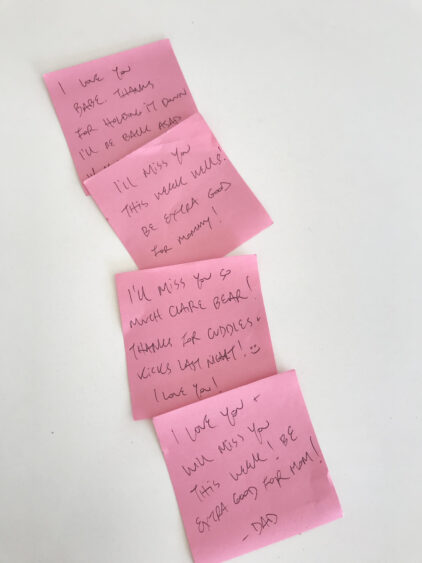 I LOVE YOU
BABE. THANKS
FOR HOLDING IT DOWN
I'LL BE BACK ASAP
I'LL MISS YOU
THIS WEEK WELLS!
BE EXTRA GOOD
FOR MOMMY!
I'LL MISS YOU SO
MUCH CLARE BEAR!
THANKS FOR CUDDLES +
KICKS LAST NIGHT! :)
I LOVE YOU!
I LOVE YOU +
WILL MISS YOU
THIS WEEK! BE
EXTRA GOOD FOR MOM!
- DAD